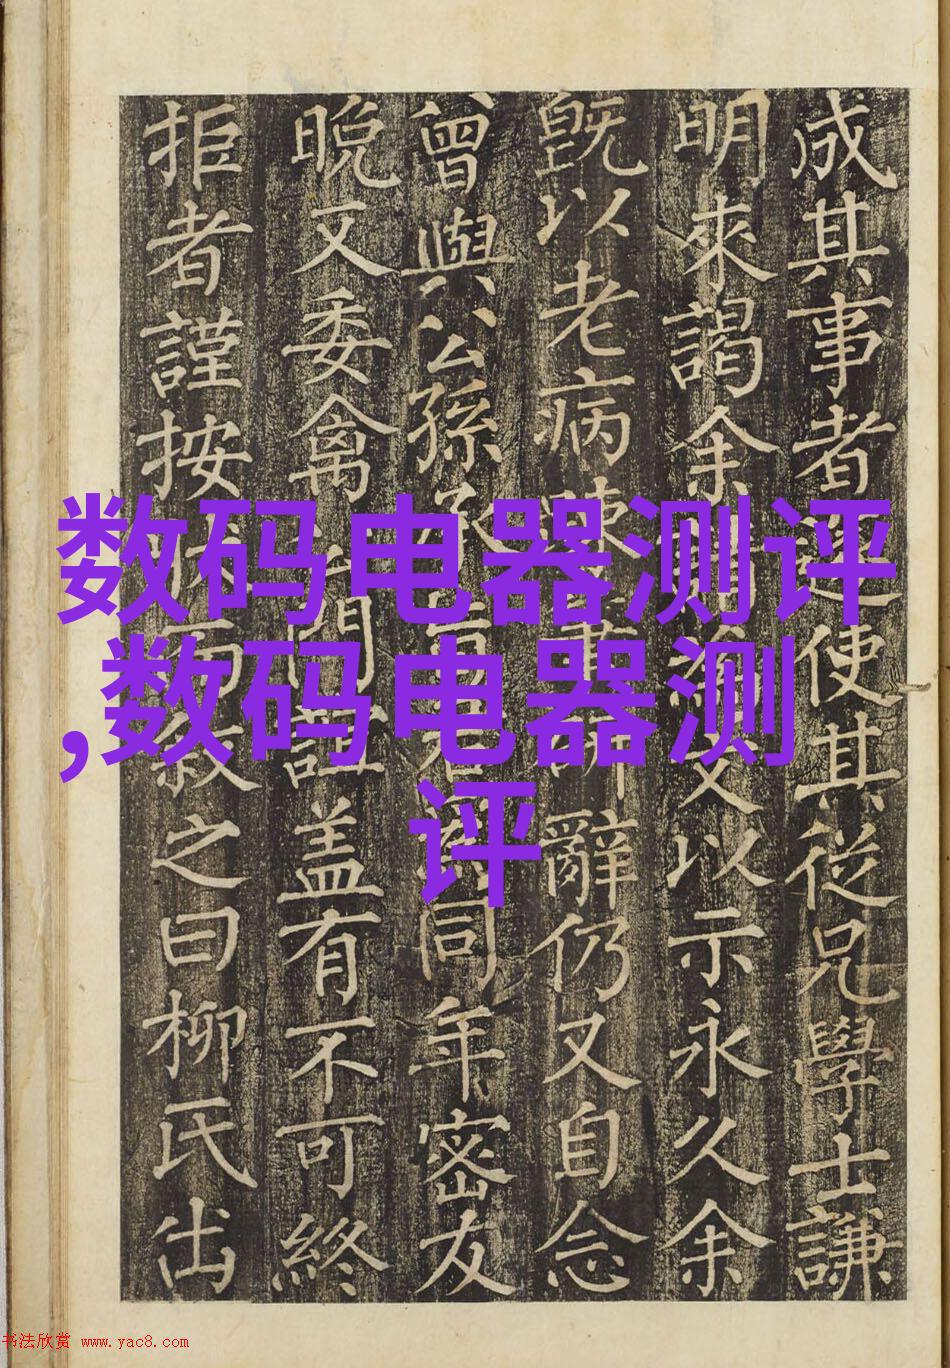 成其事者迺使其從兄學士謙
明來謁余以示永久余
旣以老病辭仍又自念
曾與公孫同年密友
晚又委禽門盖有不可終
拒者謹按之曰柳氏出
数码电器测评
,数码电器测
评
书法欣赏 www.yac8.com